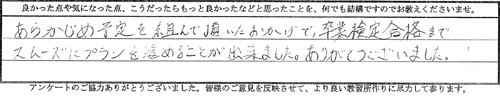 良かった点や気になった点、こうだったらもっと良かったなどと思ったことを、何でも結構ですのでお教えくださいませ。
あらかじめ予定を組んで頂いたおかげで、卒業検定合格まで
スムーズにプランを進めることが出来ました。ありがとうございました。
アンケートのご協力ありがとうございました。皆様のご意見を反映させて、より良い教習所作りに尽力して参ります。